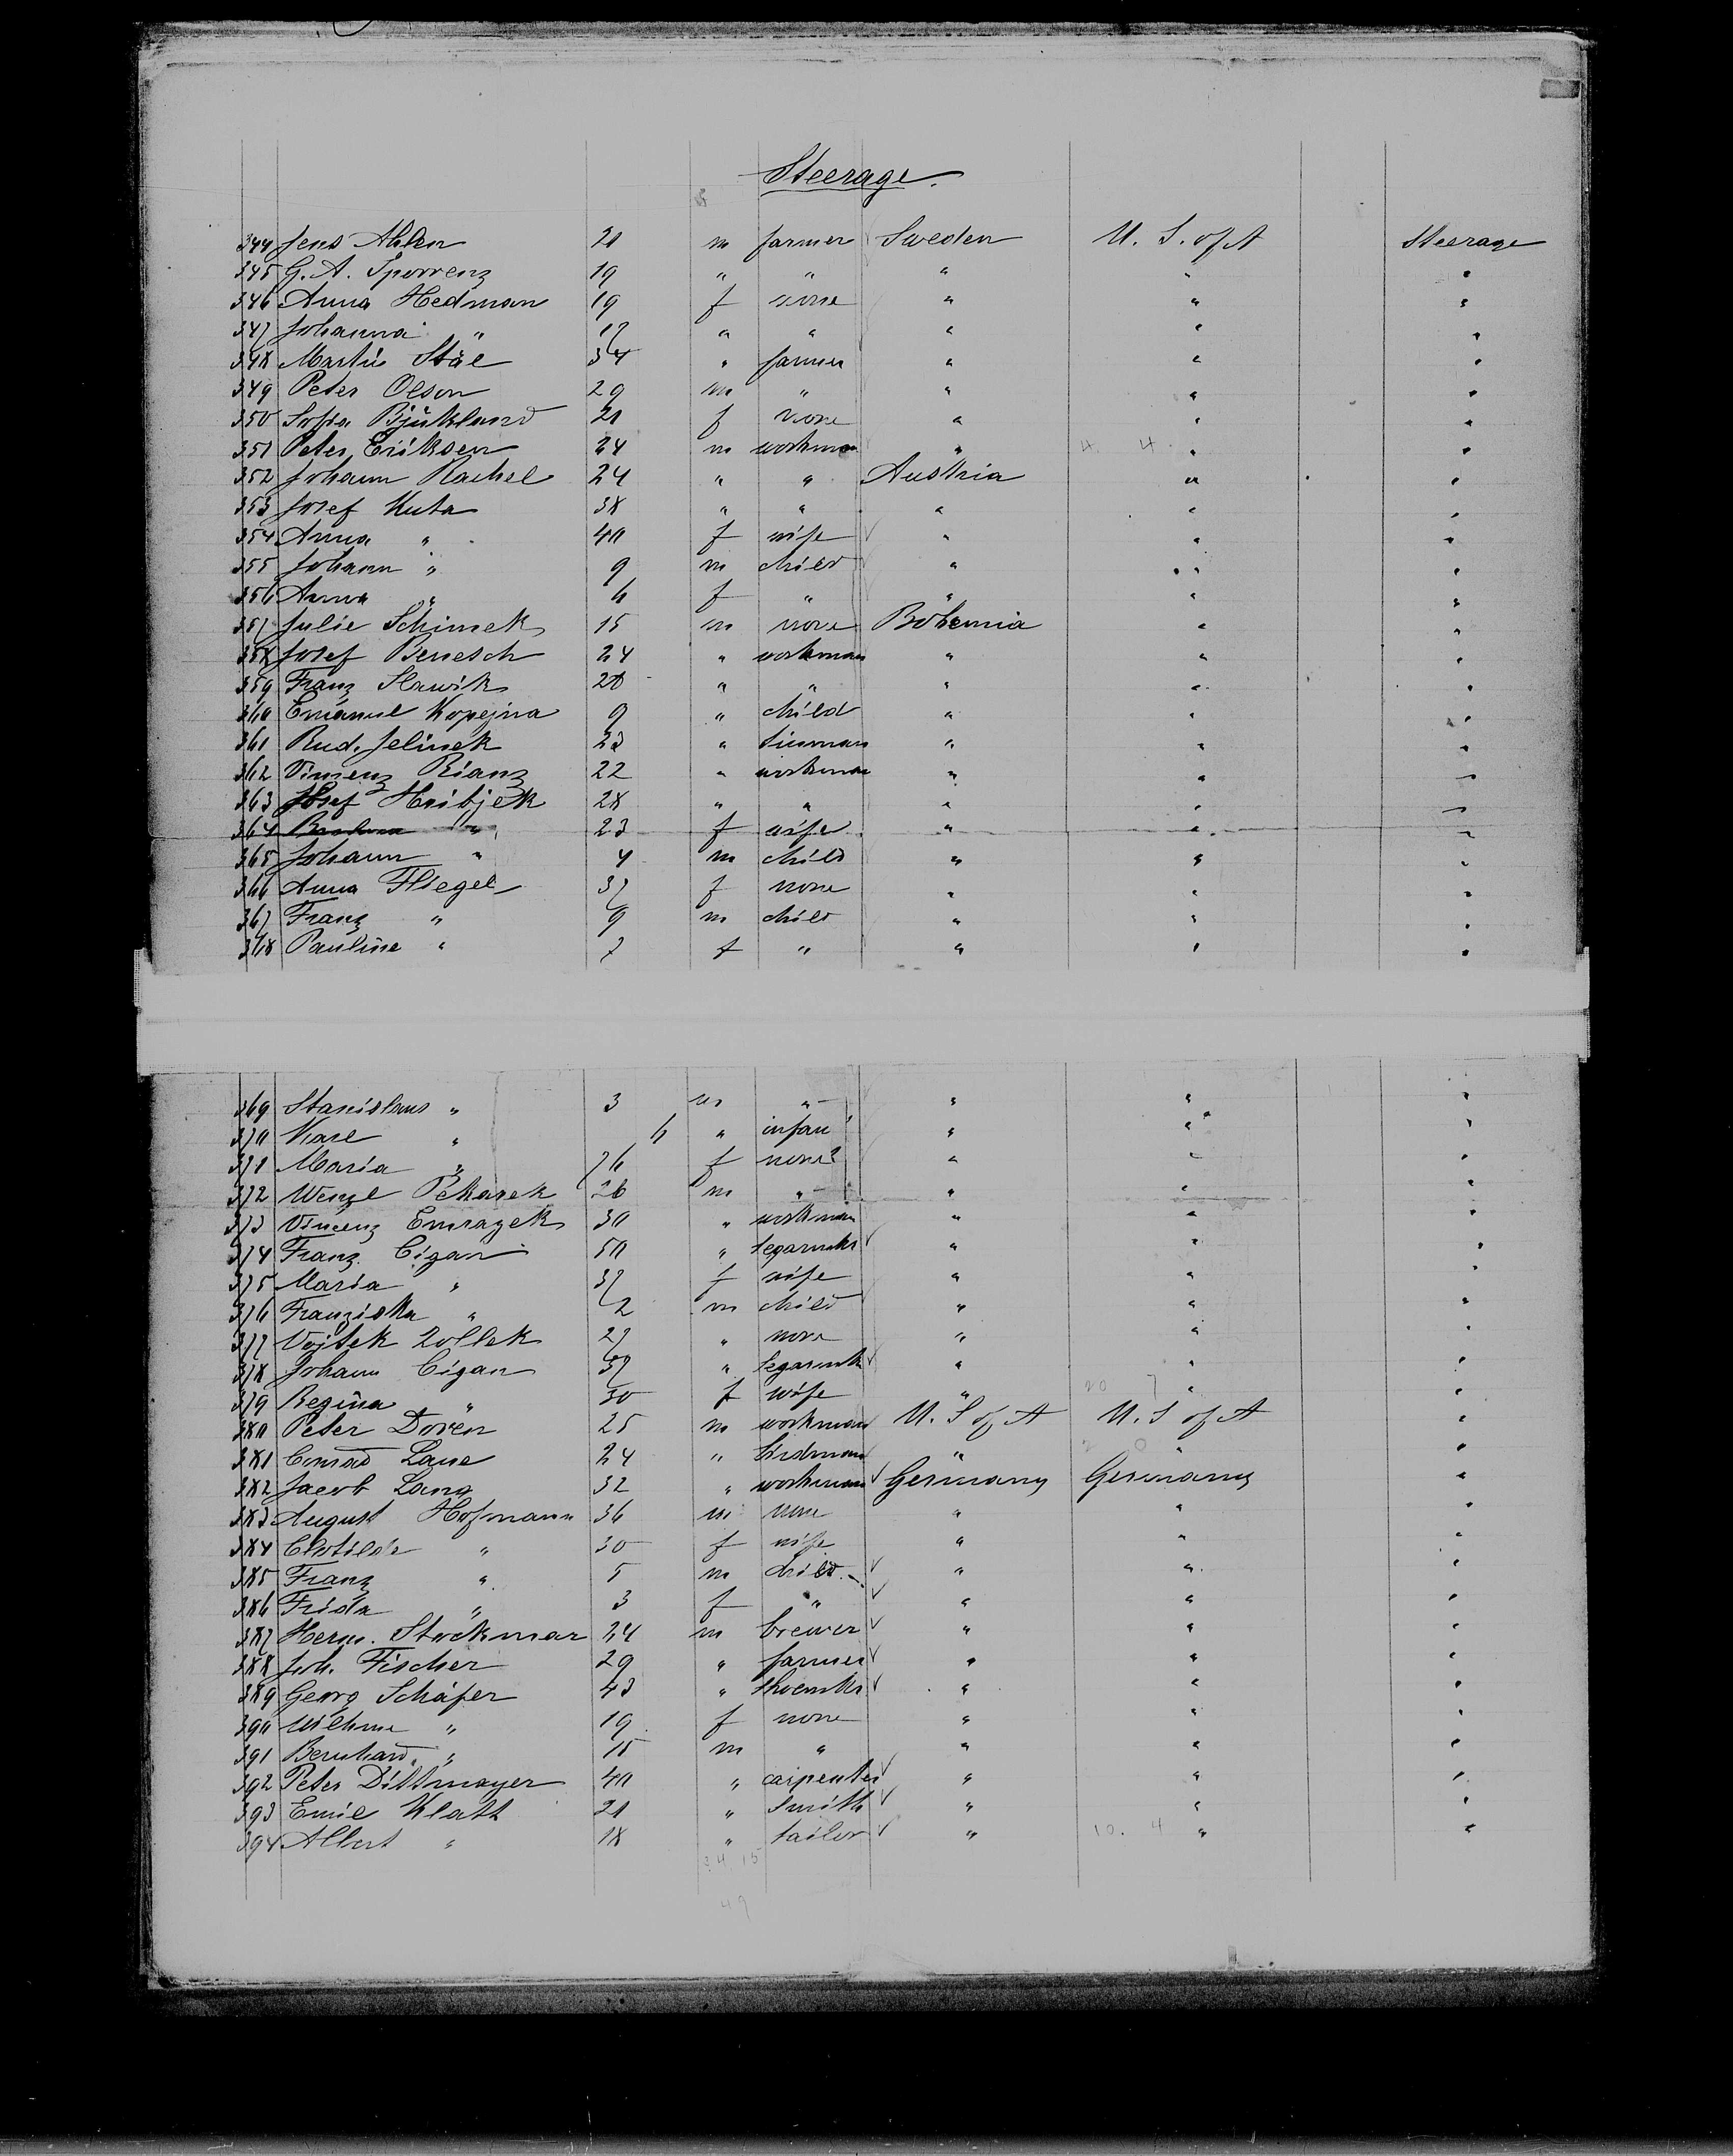 Steerage.
344 Jens Ahlen 21 m farmer Sweden U. S. of A Steerage
345 G. A. Sporrenz 19 " " " " "
346 Anna Hedman 19 f none " " "
347 Johanna " 17 " " " " "
348 Martin Stäl 34 " farmer " " "
349 Peter Olson 29 m " " " "
350 Sofia Bjüklund 21 f none " " "
351 Peter Eriksen 24 m workman " " "
352 Johann Rachel 24 " " Austria " "
353 Josef Kuta 38 " " " " "
354 Anna " 40 f wife " " "
355 Johann " 9 m child " " "
356 Anna " 6 f " " " "
357 Julie Schimek 15 m none Bohemia " "
358 Josef Benesch 24 " workman " " "
359 Franz Slawik 28 " " " " "
360 Emanuel Kopejna 9 " child " " "
361 Rud. Jelinek 23 " tinman " " "
362 Vinzenz Rianz 22 " workman " " "
363 Josef Hribjek 28 " " " " "
364 " 23 f wife " " "
365 Johann " 4 m child " " "
366 Anna Fliegel 37 f none " " "
367 Franz " 9 m child " " "
368 Pauline " 7 f " " " "
369 Stanislaus " 3 m " " " "
370 Karl " 6 " infan " " "
371 Maria " 76 f none " " "
372 Wenzl Pekarek 26 m " " " "
373 Vincenz Emrazek 30 " workman " " "
374 Franz Cigan 50 " segarmkr " " "
375 Maria " 37 f wife " " "
376 Franziska " 2 m child " " "
377 Vojtek Zollek 27 " none " " "
378 Johann Cigan 37 " segarmk " " "
379 Regina " 30 f wife " " "
380 Peter Doren 25 m workman U. S of A U. S of A "
381 Conrad Lane 24 " birdman " " "
382 Jacob Lang 32 " workman Germany Germany "
383 August Hofmann 36 m none " " "
384 Clotilde " 30 f wife " " "
385 Franz " 5 m child " " "
386 Frida " 3 f " " " "
387 Herm. Stockmar 24 m brewer " " "
388 Joh. Fischer 29 " farmer " " "
389 Georg Schäfer 43 " shoemkr " " "
390 Wilhme " 19 f none " " "
391 Bernhard " 15 m " " " "
392 Peter Dittmayer 40 " carpenter " " "
393 Emil Klatt 21 " smith " " "
394 Albert " 18 " tailor " " "
34 15
49